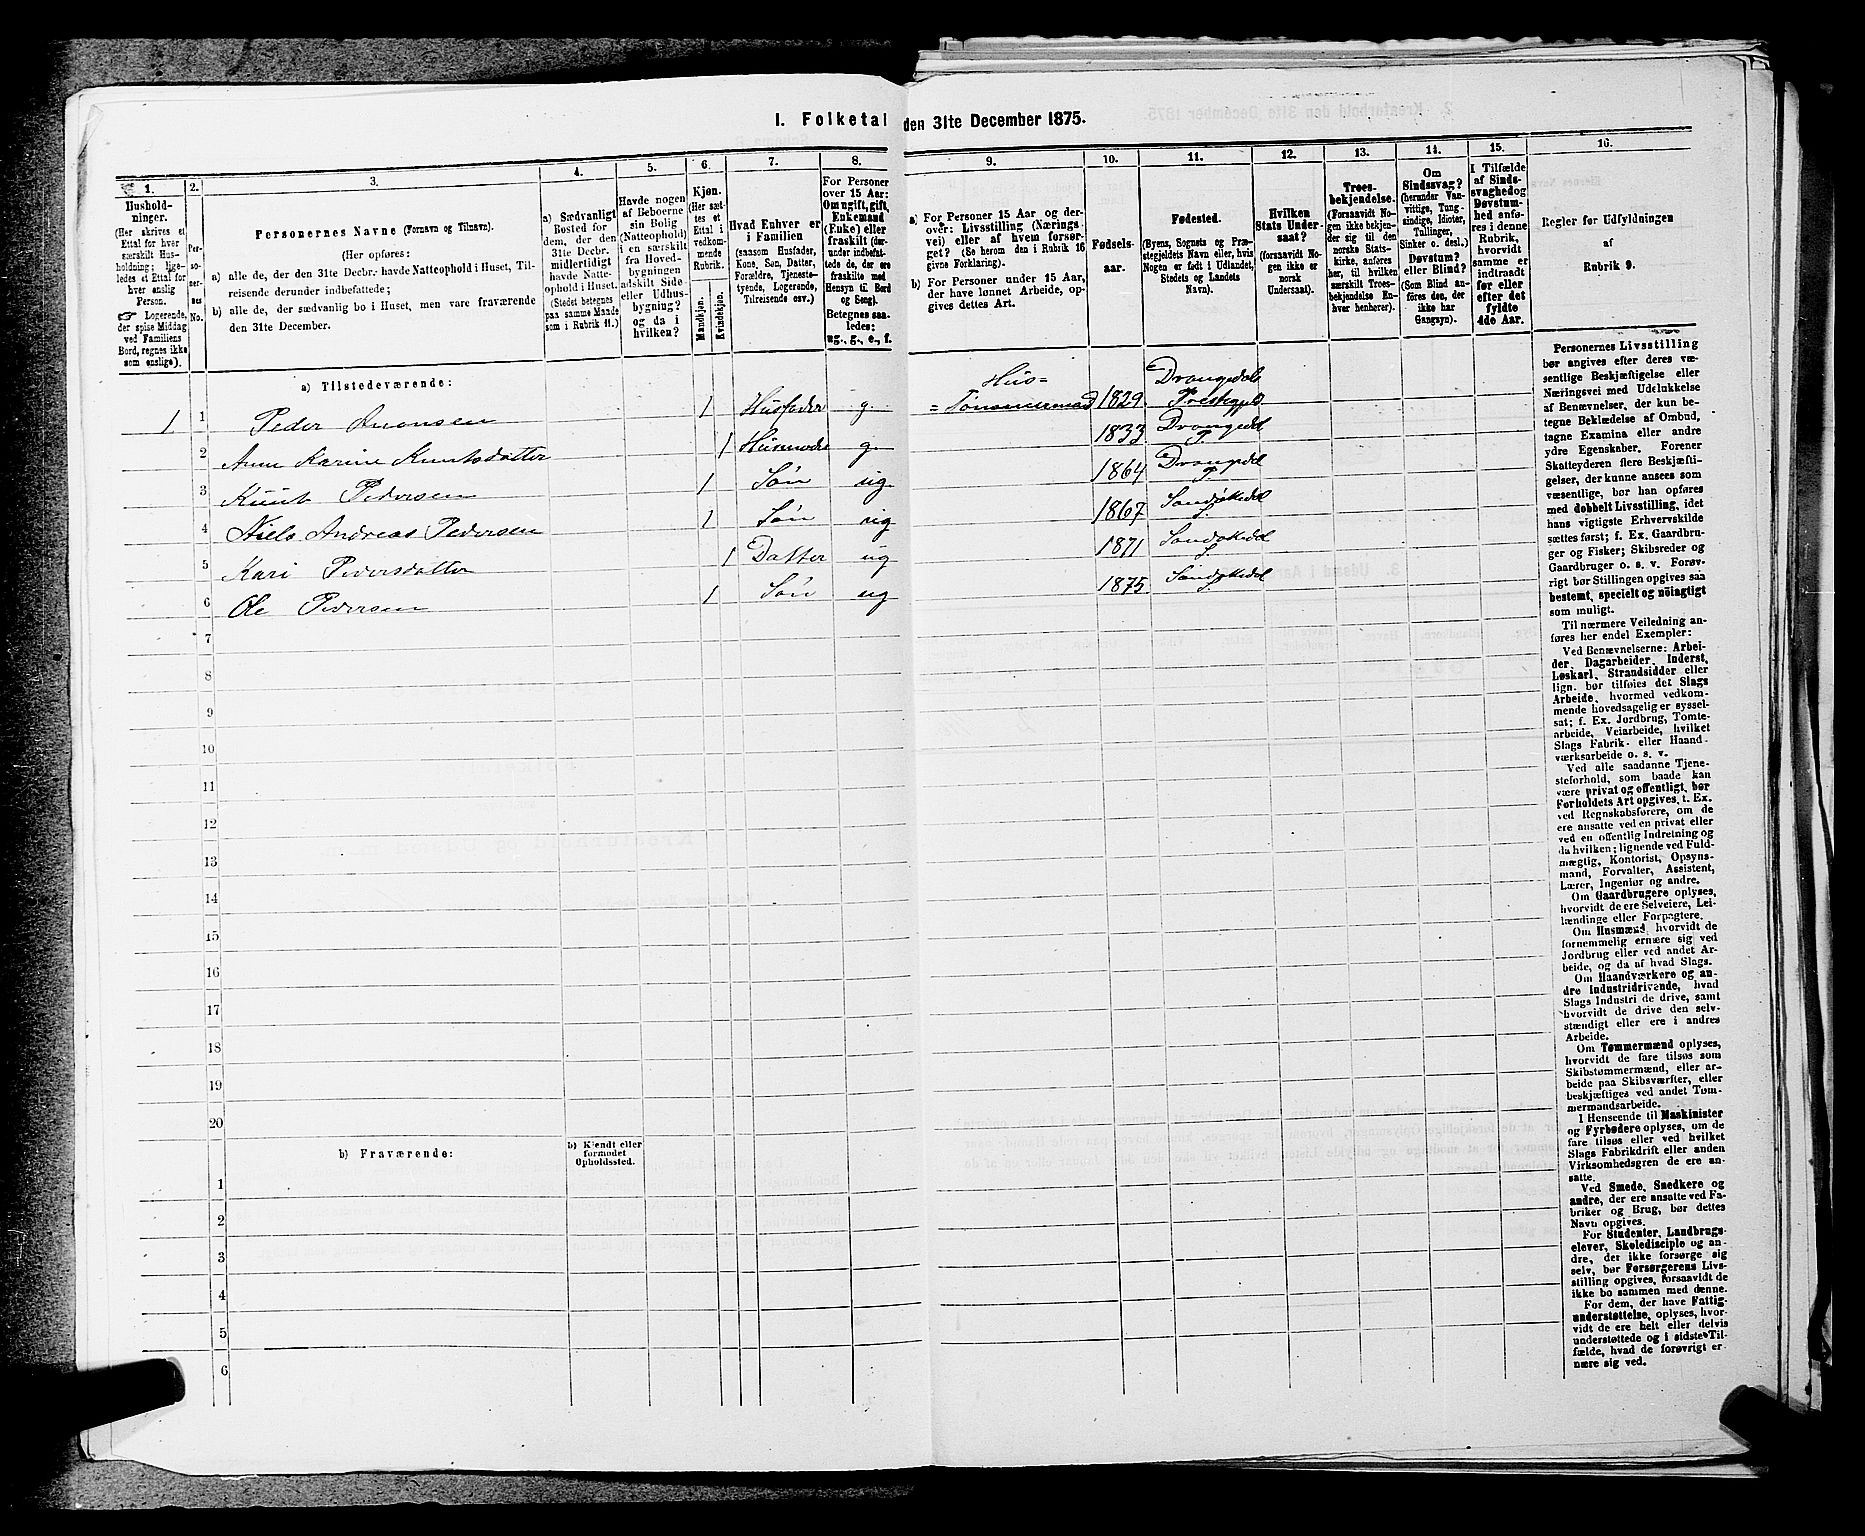 I. Folketal den 31te December 1875.
1.
2.
3.
4.
5.
6.
7.
8.
9.
10.
11.
12.
13.
14.
15.
16.
Husholdninger.
(Her skrives et Ettal for hver særskilt Husholdning; ligeledes et Ettal for hver enslig Person.
☞ Logerende, der spise Middag ved Familiens Bord, regnes ikke som enslige).
Personernes No.
Personernes Navne (Fornavn og Tilnavn).
(Her opføres:
a) alle de, der den 31te Decbr. havde Natteophold i Huset, Tilreisende derunder indbefattede;
b) alle de, der sædvanlig bo i Huset, men vare fraværende den 31te December.
a) Sædvanligt Bosted for dem, der den 31te Decbr. midlertidigt havde Natteophold i Huset. (Stedet betegnes paa samme Maade som i Rubrik 11.)
Havde nogen af Beboerne sin Bolig (Natteophold) i en særskilt fra Hovedbygningen adskilt Side- eller Udhusbygning? og da i hvilken?
Kjøn.
(Her sættes et Ettal i vedkommende Rubrik.
Mandkjøn.
Kvindekjøn.
Hvad Enhver er i Familien
(saasom Husfader, Kone, Søn, Datter, Forældre, Tjenestetyende, Logerende, Tilreisende osv.)
For Personer over 15 Aar: Om ugift, gift, Enkemand (Enke) eller fraskilt (derunder indbefattede de, der ere fraskilte med Hensyn til Bord og Seng).
Betegnes saaledes: ug., g., e., f.
a) For Personer 15 Aar og derover: Livsstilling (Næringsvei) eller af hvem forsørget? (Se herom den i Rubrik 16 givne Forklaring).
b) For Personer under 15 Aar, der have lønnet Arbeide, opgives dettes Art.
Fødselsaar.
Fødested.
(Byens, Sognets og Præstegjeldets Navn, eller, hvis Nogen er født i Udlandet, Stedets og Landets Navn).
Hvilken Stats Undersaat?
(forsaavidt Nogen ikke er norsk Undersaat).
Troesbekjendelse.
(Forsaavidt Nogen ikke bekjender sig til den norske Statskirke, anføres her, til hvilken særskilt Troesbekjendelse Enhver henhører).
Om Sindssvag?
(herunder Vanvittige, Tungsindige, Idioter, Tullinger, Sinker o. desl.)
Døvstum? eller Blind?
(Som Blind anføres den, der ikke har Gangsyn).
I Tilfælde af Sindssvaghed og Døvstumhed anføres i denne Rubrik, hvorvidt samme er indtraadt før eller efter det fyldte 4de Aar.
Regler for Udfyldningen
af
Rubrik 9.
a) Tilstedeværende:
1 1 Peder 1 Husfader g. Hus= =Tømmermand 1829 Drangedals Prestegjeld
2 Anne Karine Knutsdatter 1 Husmoder g. 1833 Drangedal P.
3 Knut Pedersen 1 Søn ug. 1864 Drangedal P.
4 Niels Andreas Pedersen 1 Søn ug 1867 Sandøkedal
5 Kari Pedersdatter 1 Datter ug 1871 Sandøkedal
6 Ole Pedersen 1 Søn ug 1875 Sandøkedal
7
8
9
10
11
12
13
14
15
16
17
18
19
20
b) Fraværende:
b) Kjendt eller formodet Opholdssted.
1
2
3
4
5
6
Personernes Livsstilling
bør angives efter deres væ-
sentlige Beskjæftigelse eller
Næringsvei med Udelukkelse
af Benævnelser, der kun be-
tegne Beklædelse af Ombud,
tagne Examina eller andre
ydre Egenskaber. Forener
Skatteyderen flere Beskjæfti-
gelser, der kunne ansees som
væsentlige, bør han opføres
med dobbelt Livsstilling, idet
hans vigtigste Erhvervskilde
sættes først; f. Ex. Gaardbru-
ger og Fisker; Skibsreder og
Gaardbruger o. s. v. Forøv-
rigt bør Stillingen opgives saa
bestemt, specielt og nöiagtigt
som muligt.
Til nærmere Veiledning an-
føres her endel Exempler:
Ved Benævnelserne: Arbei-
der, Dagarbeider, Inderst,
Løskarl, Strandsidder eller
lign. bør tilføies det Slags
Arbeide, hvormed vedkom-
mende hovedsagelig er syssel-
sat; f. Ex. Jordbrug, Tomte-
arbeide, Veiarbeide, hvilket
Slags Fabrik- eller Haand-
værksarbeide o. s. v.
Ved alle saadanne Tjene-
steforhold, som baade kan
være privat og offentligt, bør
Forholdets Art opgives, t. Ex.
ved Regnskabsførere, om de
ere ansatte ved en privat eller
ved en offentlig Indretning og
da hvilken; lignende ved Fuld-
mægtig, Kontorist, Opsyns-
mand, Forvalter, Assistent,
Lærer, Ingeniør og andre.
Om Gaardbrugere oplyses,
hvorvidt de ere Selveiere, Lei-
lændinge eller Forpagtere.
Om Husmænd, hvorvidt de
fornemmelig ernære sig ved
Jordbrug eller ved andet Ar-
beide, og da af hvad Slags.
Om Haandværkere og an-
dre Industridrivende, hvad
Slags Industri de drive, samt
hvorvidt de drive den selv-
stændigt eller ere i andres
Arbeide.
Om Tømmermænd oplyses,
hvorvidt de fare tilsøs som
Skibstømmermænd, eller ar-
beide paa Skibsværfter, eller
beskjæftiges ved andet Tøm-
mermandsarbeide.
I Henseende til Maskinister
og Fyrbødere oplyses, om de
fare tilsøs eller ved hvilket
Slags Fabrikdrift eller anden
Virksomhedsgren de ere an-
satte.
Ved Smede, Snedkere og
andre, der ere ansatte ved Fa-
briker og Brug, bør dettes
Navn opgives.
For Studenter, Landbrugs-
elever, Skoledisciple og an-
dre, der ikke forsørge sig
selv, bør Forsørgerens Livs-
stilling opgives, forsaavidt de
ikke bo sammen med denne.
For dem, der have Fattig-
understøttelse, oplyses, hvor-
vidt de ere helt eller delvis
understøttede og i sidste Til-
fælde, hvad de forøvrigt er-
nære sig ved.